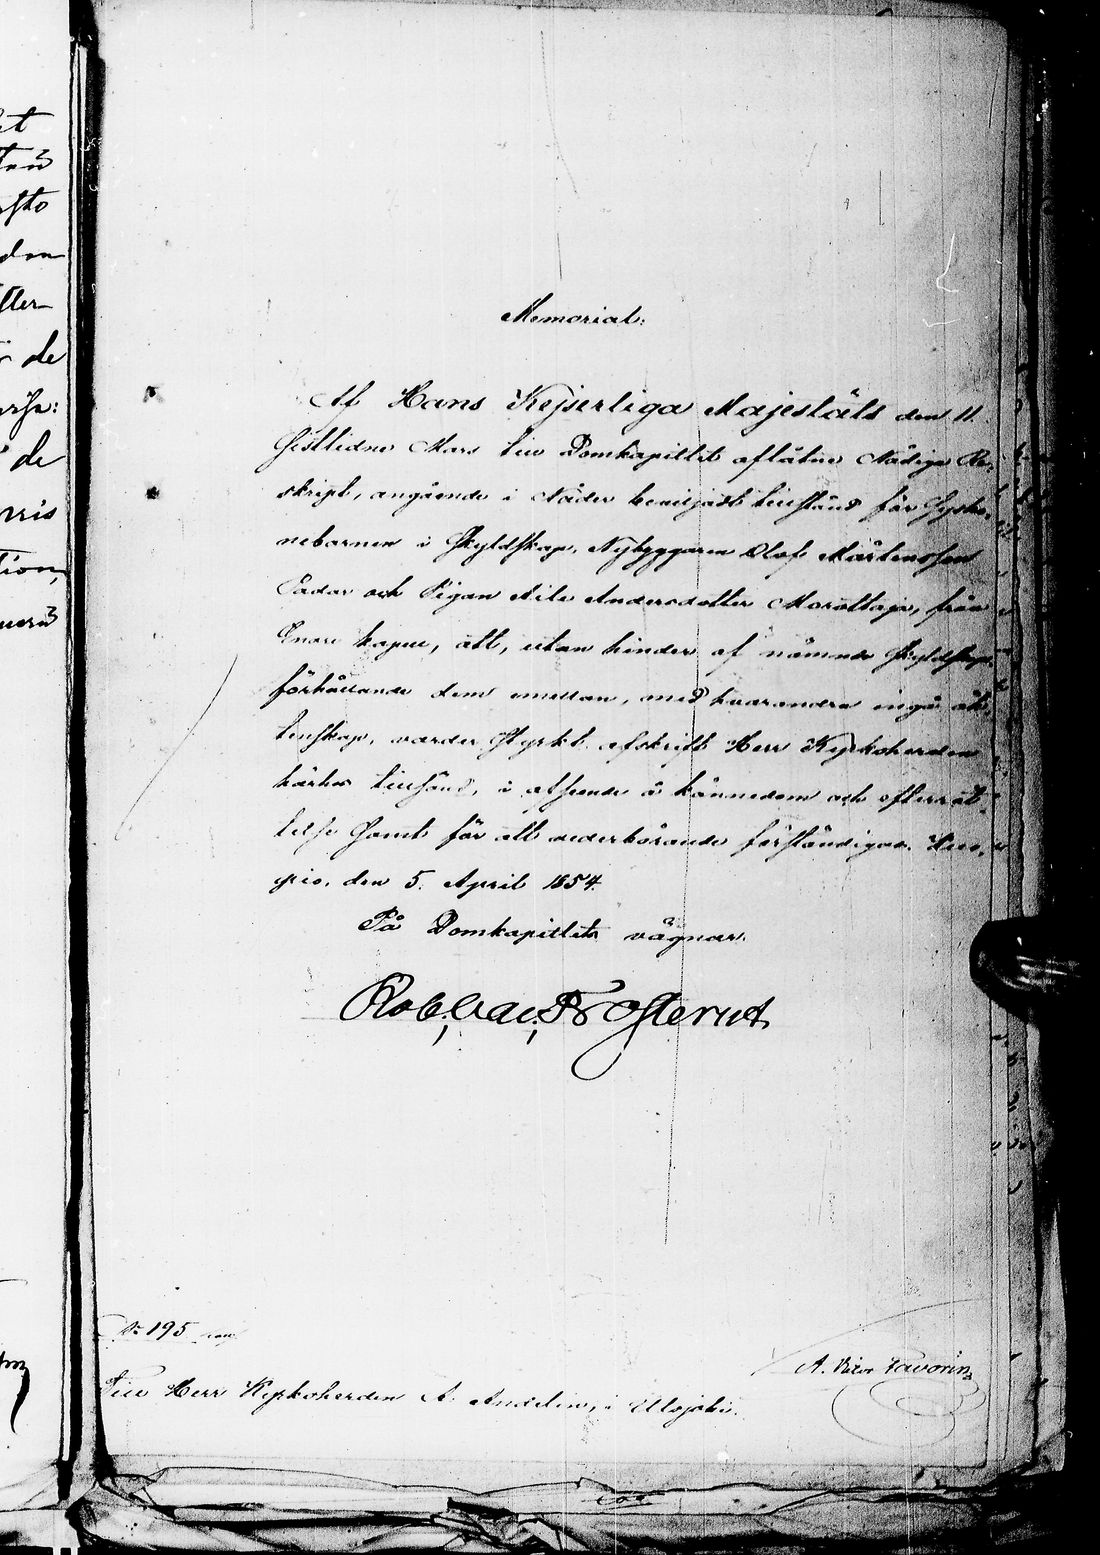 et
den
fter
de
de
tion,
Memorial:
Af Hans Kejserliga Majestäts den 11.
sistlidne Mars till Domkapitlet aflåtne Nådiga Re-
skript, angående i Nåder beviljadt tillstånd för Sysko-
nebarnen i Skyldskap, Nybyggaren Olof Mårtensson
Sadar och Pigan Aile Andersdotter Morottaja, från
Enare kapell, att, utan hinder af nämnde Skyldskaps
förhållande dem emellan, med hvarandra ingå äk-
tenskap, varder Styrkt afskrift Herr Kyrkoherden
härhos tillsänd, i afseende å kännedom och efterrät-
telse samt för att vederbörande förständigas. Kuo-
pio, den 5. April 1854.
På Domkapitlets vägnar.
Rob. Val. Frosterus
No 195
A. Vikor Favorin
Till Herr Kyrkoherden A. Andelin, i Utsjoki.